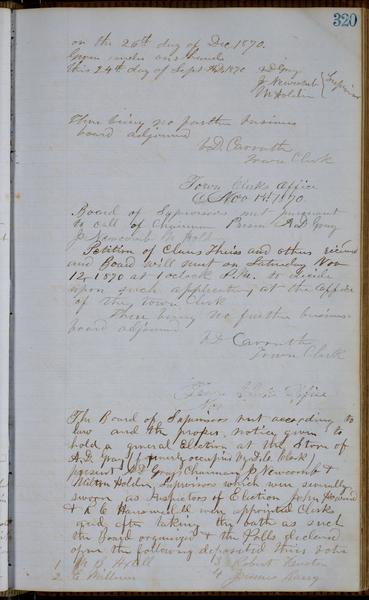 320
on the 26th day of Dec 1870.
Given under our hands
this 24th day of Sept 1870
R D Gray
J Newcomb
M Holden
Supervisors
There being no further business
board adjourned
Town Clerk
Town Clerks Office
Nov 1st 1870
Board of Supervisors met pursuant
to call of Chairman Present R D Gray
J Newcomb M Hold
Petition of Claus Theiss and others received
and Board will meet on Saturday Nov
12, 1870 at 1 oclock P.M. to decide
upon such application, at the office
of the Town Clerk
There being no further business
board adjourned
Town Clerk
Town Clerks Office
The Board of Supervisors met according to
law and the proper notice given to
hold a general Election at the Store of
A. D. Gray formerly occupied by Clark
present R D Gray Chairman J Newcomb &
Milton Holden, Supervisors which were severally
sworn as Inspectors of Election John
& were appointed Clerks
and after taking the oath as such
the Board organized & the Polls declared
open the following deposited their vote
1 Hall 3 Robert
2 4